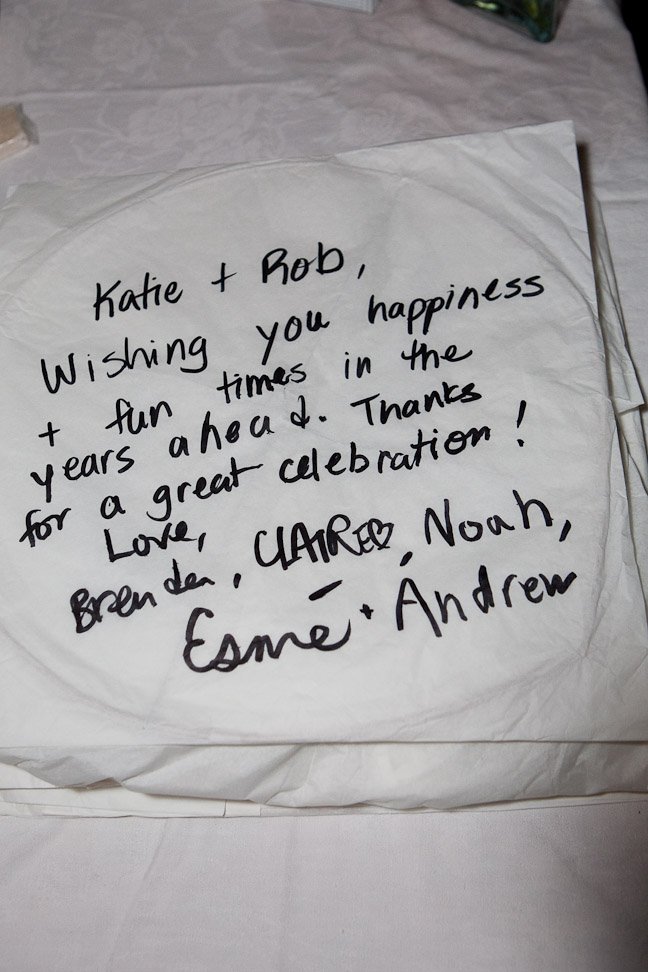 Katie + Rob,
Wishing you happiness
+ fun times in the
years ahead. Thanks
for a great celebration!
Love,
Brenda, CLAIRE♡, Noah,
Esmé + Andrew